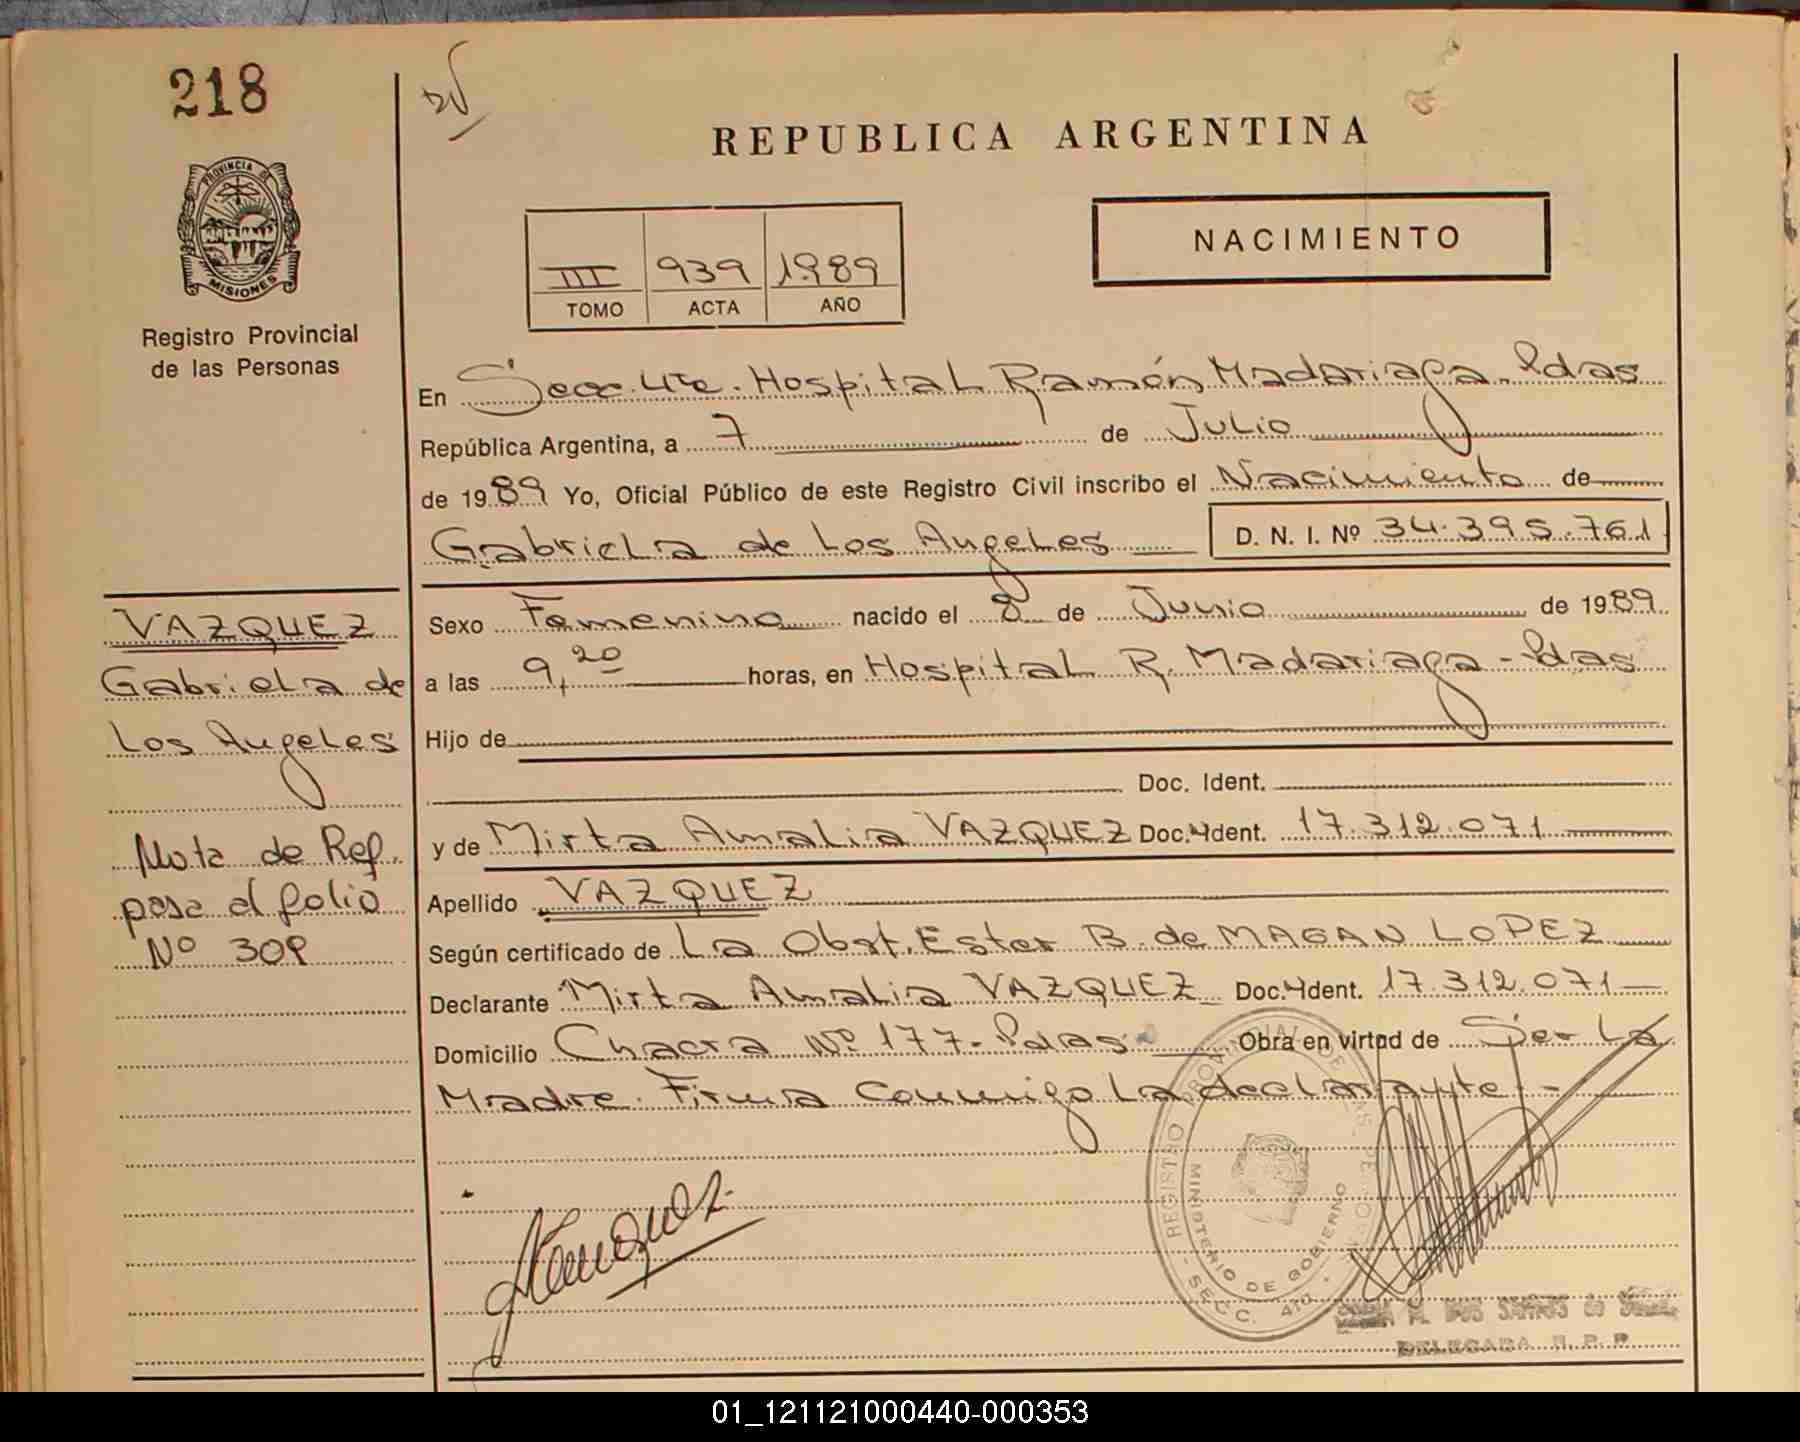 218
PROVINCIA DE
MISIONES
Registro Provincial
de las Personas
REPUBLICA ARGENTINA
III 939 1989
TOMO ACTA AÑO
NACIMIENTO
En Secc. 4ta. Hospital Ramón Madariaga. Pdas
República Argentina, a 7 de Julio
de 1989 Yo, Oficial Público de este Registro Civil inscribo el Nacimiento de
Gabriela de Los Angeles D. N. I. Nº 34.395.761
Sexo Femenino nacido el 8 de Junio de 1989
a las 9,20 horas, en Hospital R. Madariaga - Pdas
Hijo de
Doc. Ident.
y de Mirta Amalia VAZQUEZ Doc. Ident. 17.312.071
Apellido VAZQUEZ
Según certificado de La Obst. Ester B. de MAGAN LOPEZ
Declarante Mirta Amalia VAZQUEZ Doc. Ident. 17.312.071
Domicilio Chacra Nº 177. Pdas Obra en virtud de Ser La
Madre. Firma Conmigo La declarante.-
VAZQUEZ
Gabriela de
Los Angeles
Nota de Ref.
pasa al folio
Nº 309
REGISTRO PROVINCIAL DE LAS PERSONAS
MINISTERIO DE GOBIERNO
- SECC. 4ta. -
M. DOS SANTOS de
DELEGADA R. P. P.
01_121121000440-000353